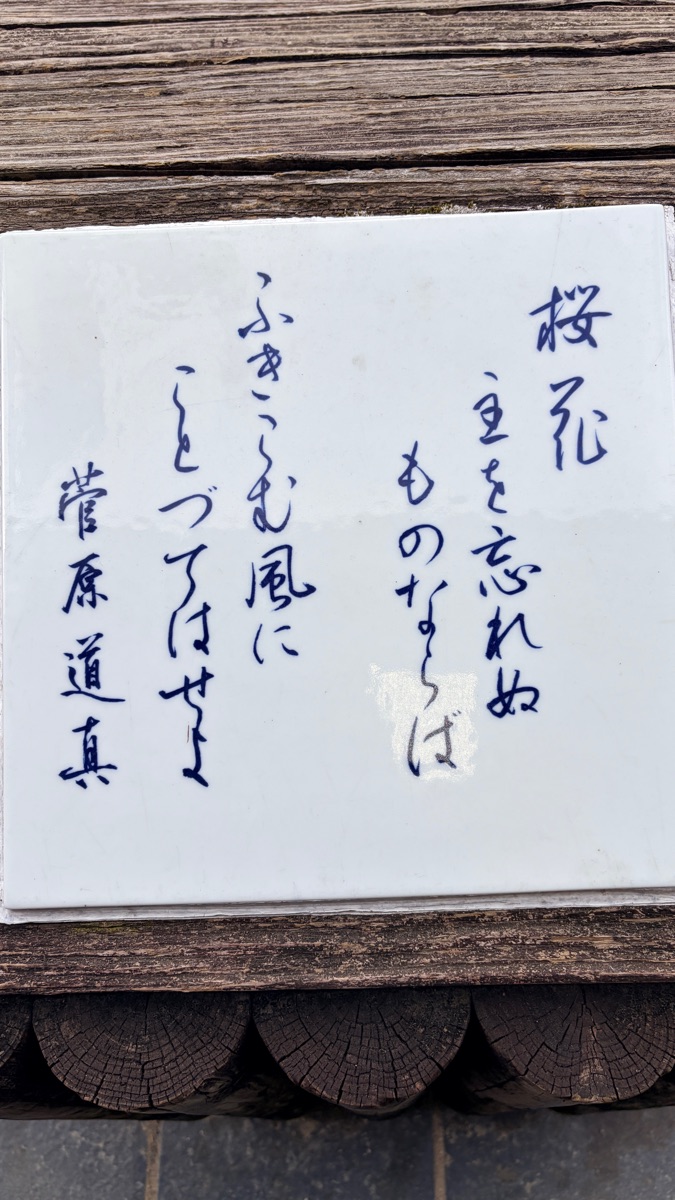 桜花
主を忘れぬ
ものならば
ふきこむ風に
ことづてはせよ
菅原道真